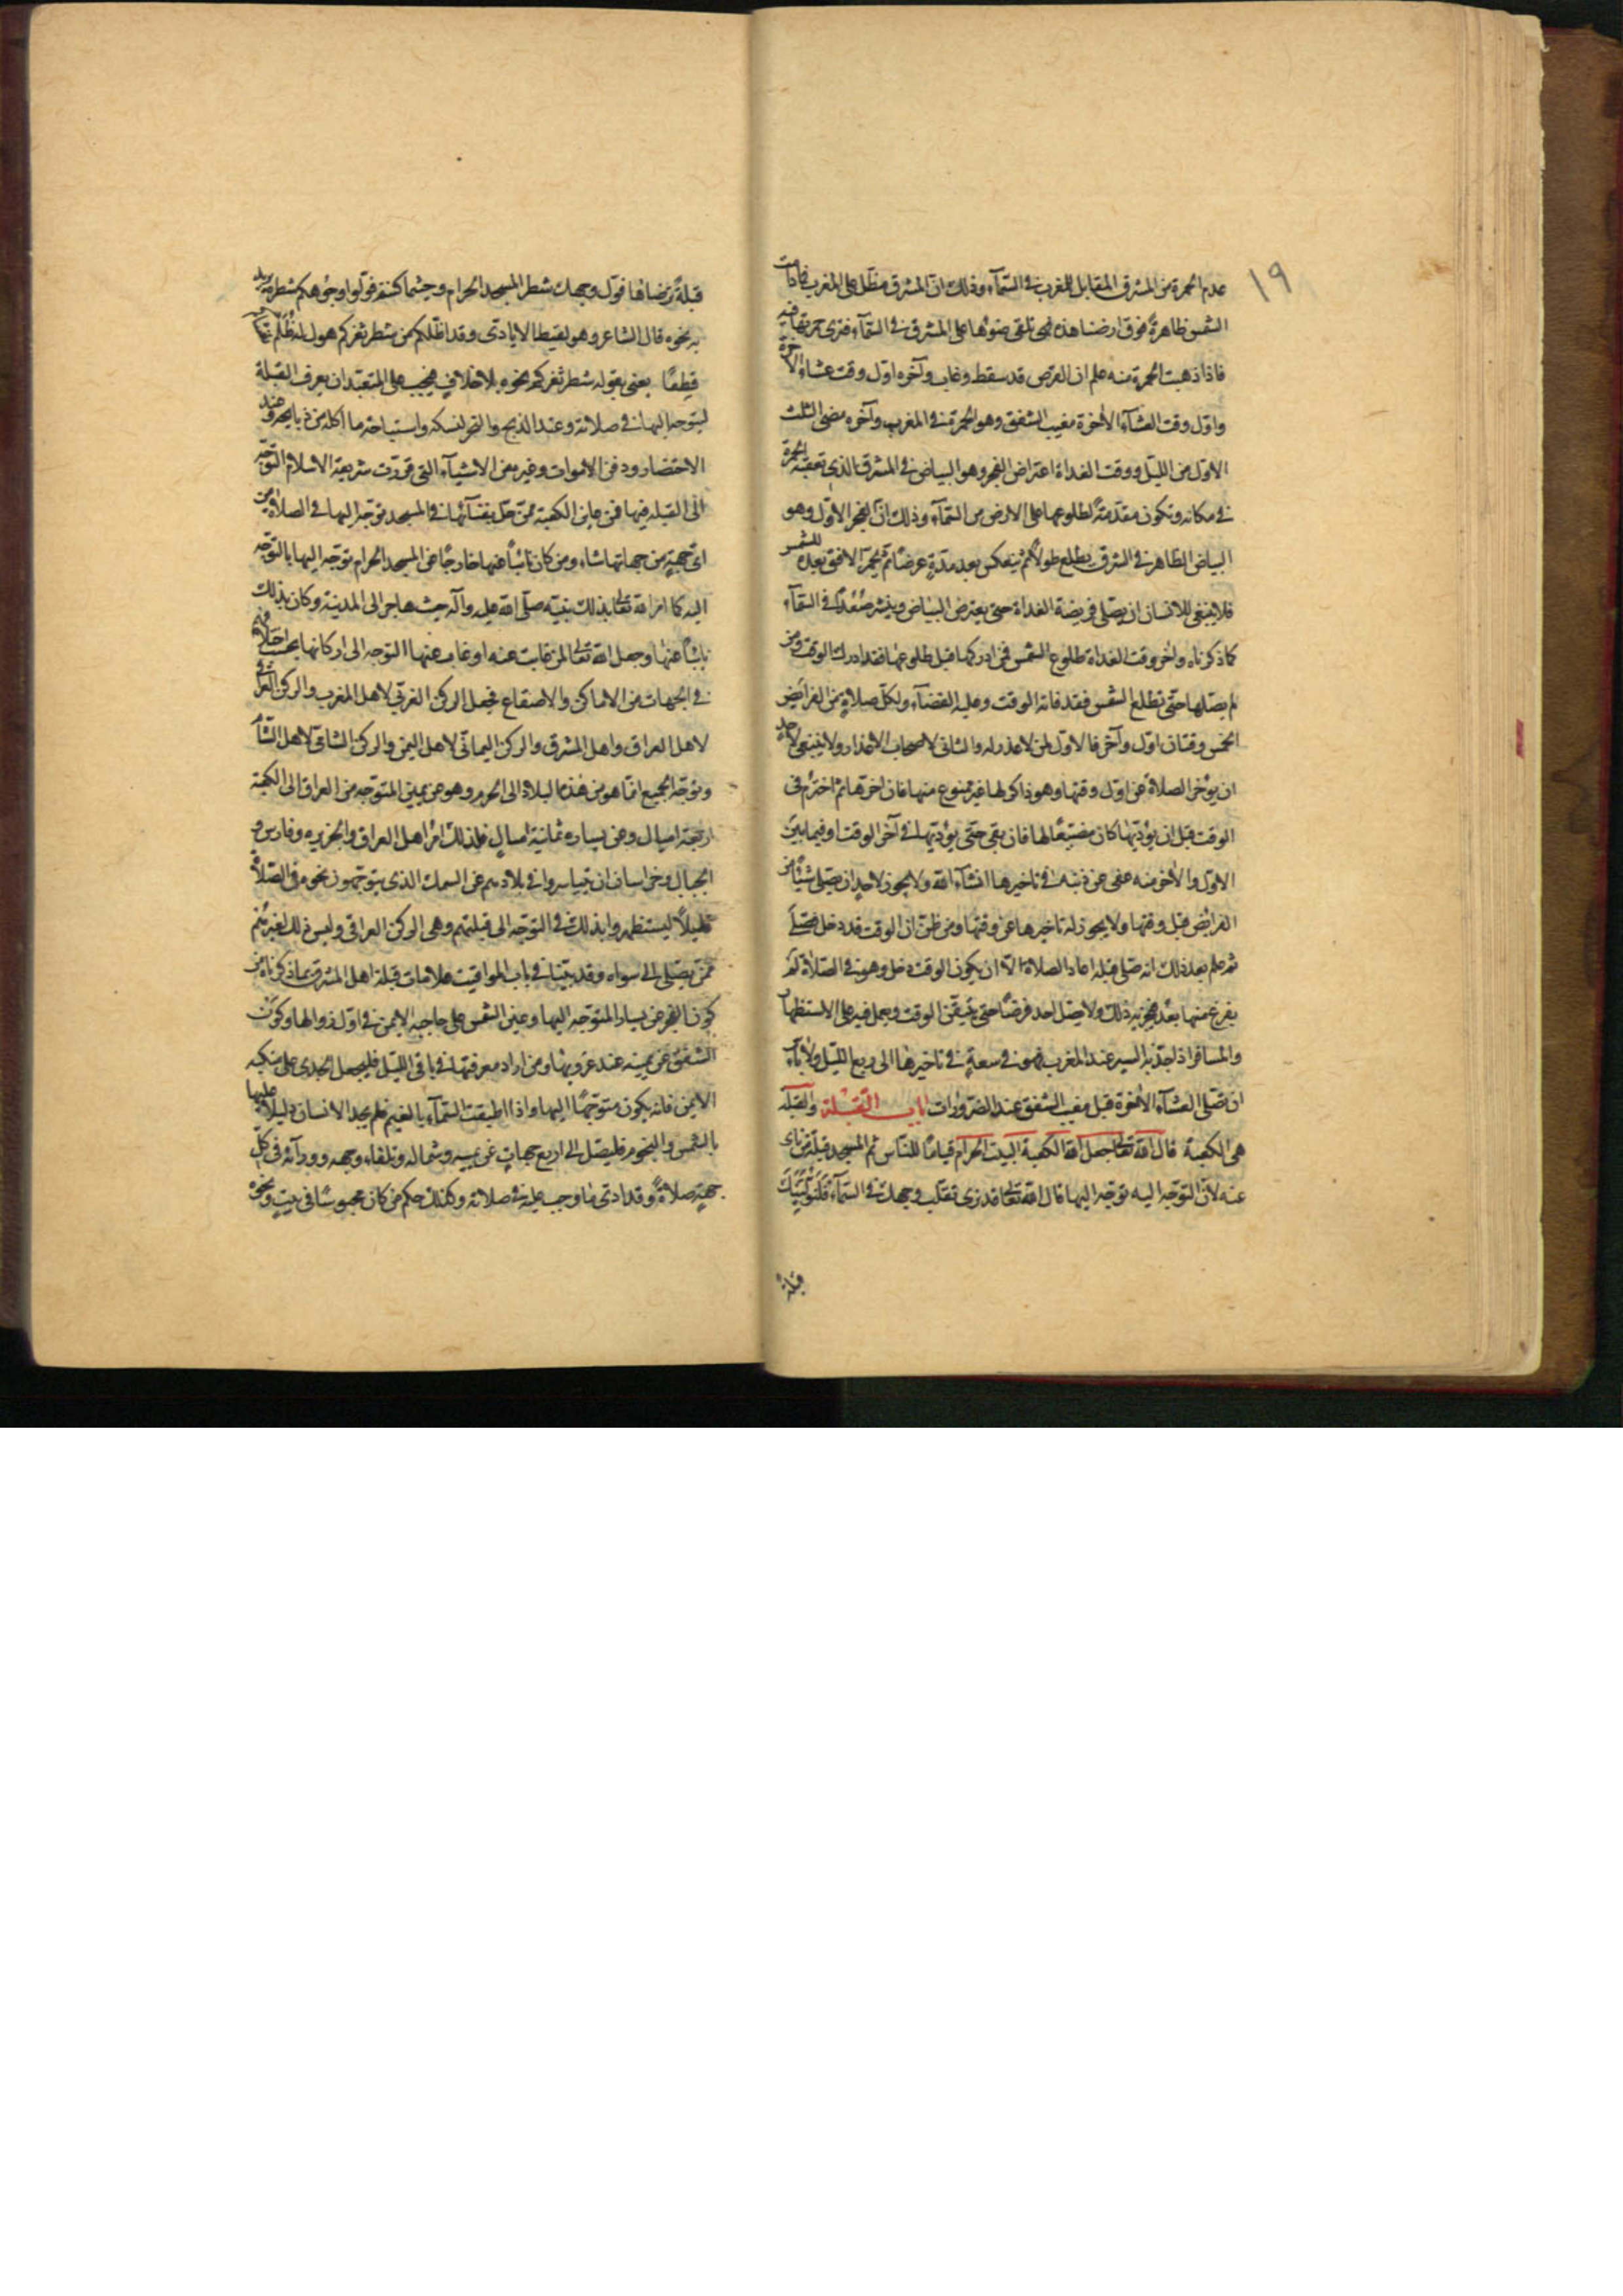 ١٩
عدم الحمرة من المشرق المقابل للمغرب في السمآء وذلك انّ المشرق مظلّ على المغرب فما دامت
الشمس ظاهرةً فوق ارضنا هذه فهي تلقي ضوئها على المشرق في السمآء فترى حمرتها فيه
فاذا ذهبت الحمرة منه علم ان القرص قد سقط وغاب وآخره اوّل وقت عشاء الآخرة
واوّل وقت العشآء الآخرة مغيب الشفق وهو الحمرة في المغرب وآخره مضى الثلث
الاوّل من الليل ووقت الغداة اعتراض الفجر وهو البياض في المشرق الذي تعقبه الحمرة
في مكانه وتكون مقدّمةً لطلوعها على الارض من السمآء وذلك انّ الفجر الاوّل وهو
البياض الظاهر في المشرق يطلع طولاً ثم ينعكس بعد مدّةٍ عرضًا ثم يحمرّ الافق بعده للشمس
فلا ينبغي للانسان ان يصلّي فريضة الغداة حتى يعترض البياض وينشر صُعُدًا في السمآء
كما ذكرناه واخر وقت الغداة طلوع الشمس فمن ادركها قبل طلوعها فقد ادرك الوقت ومن
لم يصلّها حتّى تطلع الشمس فقد فاته الوقت وعليه القضآء ولكلّ صلاةٍ من الفرائض
الخمس وقتان اوّل وآخر فالاوّل لمن لا عذر له والثاني لاصحاب الاعذار ولا ينبغي لاحد
ان يؤخر الصلاة عن اوّل وقتها وهو ذاكر لها غير ممنوع منها فان اخّرها ثم اخترم في
الوقت قبل ان يؤدّيها كان مضيّعًا لها فان بقي حتّى يؤدّيها في آخر الوقت او فيما بين
الاوّل والآخر منه عفى عن ذنبه في تاخيرها انشآء الله ولا يجوز لاحدٍ ان يصلّي شيئًا من
الفرائض قبل وقتها ولا يجوز له تاخيرها عن وقتها ومن ظنّ ان الوقت قد دخل فصلّى
ثم علم بعد ذلك انه صلّى قبله اعاد الصلاة الّا ان يكون الوقت دخل وهو في الصلاة لم
يفرغ منها بعد فيجزيه ذلك ولا يصلّ احد فرضًا حتى يتيقّن الوقت ويعمل فيه على الاستظهار
والمسافر اذا جدّ به السير عند المغرب فهو في سعةٍ في تاخيرها الى ربع الليل ولا باس
ان تصلّى العشآء الآخرة قبل مغيب الشفق عند الضرورات باب القبلة والقبلة
هي الكعبة قال الله تعالى جعل الله الكعبة البيت الحرام قيامًا للنّاس ثم المسجد قبلة من نأى
عنه لانّ التوجّه اليه توجّه اليها قال الله تعالى قد نرى تقلّب وجهك في السمآء فَلَنُوَلِّيَنَّكَ
قبلةً
قبلةً ترضاها فولّ وجهك شطر المسجد الحرام وحيثما كنتم فولّوا وجوهكم شطره يريد
به نحوه قال الشاعر وهو لقيط الايادي وقد اظلّكم من شطر ثغركم هول له ظُلَم تغشاكم
قِطعًا يعني بقوله شطر ثغركم نحوه بلا خلافٍ فيجب على المتعبّد ان يعرف القبلة
ليتوجه اليها في صلاته وعند الذبح والنحر لنسكه واستباحة ما اكله من ذبايحه وعند
الاحتضار ودفن الاموات وغيره من الاشيآء التي قرّرت شريعة الاسلام التوجّه
الى القبلة فيها فمن عاين الكعبة ممن حلّ بفنآئها في المسجد توجّه اليها في الصلاة من
ايّ جهةٍ من جهاتها شاء ومن كان نائيًا عنها خارجًا عن المسجد الحرام توجّه اليها بالتوجّه
اليه كما امر الله تعالى بذلك نبيّه صلّى الله عليه وآله حيث هاجر الى المدينة وكان بذلك
نائيًا عنها وجعل الله تعالى لمن غابت عنه او غاب عنها التوجه الى اركانها بحسب اختلافهم
في الجهات من الاماكن والاصقاع فجعل الركن الغربي لاهل المغرب والركن العراقي
لاهل العراق واهل المشرق والركن اليماني لاهل اليمن والركن الشامي لاهل الشأم
وتوجّه الجميع انّما هو من هذه البلاد الى الحرم وهو عن يمين المتوجّه من العراق الى الكعبة
اربعة اميال وعن يساره ثمانية اميالٍ فلذلك امر اهل العراق والجزيره وفارس و
الجبال وخراسان ان يتياسروا في بلادهم عن السمت الذي يتوجّهون نحوه في الصلاة
قليلاً ليستظهروا بذلك في التوجّه الى قبلتهم وهي الركن العراقي وليس ذلك لغيرهم
ممن يصلّي الى سواه وقد بيّنا في باب المواقيت علامات قبلة اهل المشرق بما ذكرناه من
كون الفجر عن يسار المتوجّه اليها وعين الشمس على حاجبه الايمن في اوّل زوالها وكون
الشفق عن يمينه عند غروبها ومن اراد معرفتها في باقي الليل فليجعل الجدي على منكبه
الايمن فانه يكون متوجّهًا اليها واذا اطبقت السّمآء بالغيم فلم يجد الانسان دليلاً عليها
بالشمس والنجوم فليصلّ الى اربع جهاتٍ عن يمينه وشماله وتلقاء وجهه وورآئه في كلّ
جهةٍ صلاةً وقد ادّى ما وجب عليه في صلاته وكذلك حكم من كان محبوسًا في بيتٍ ونحوه